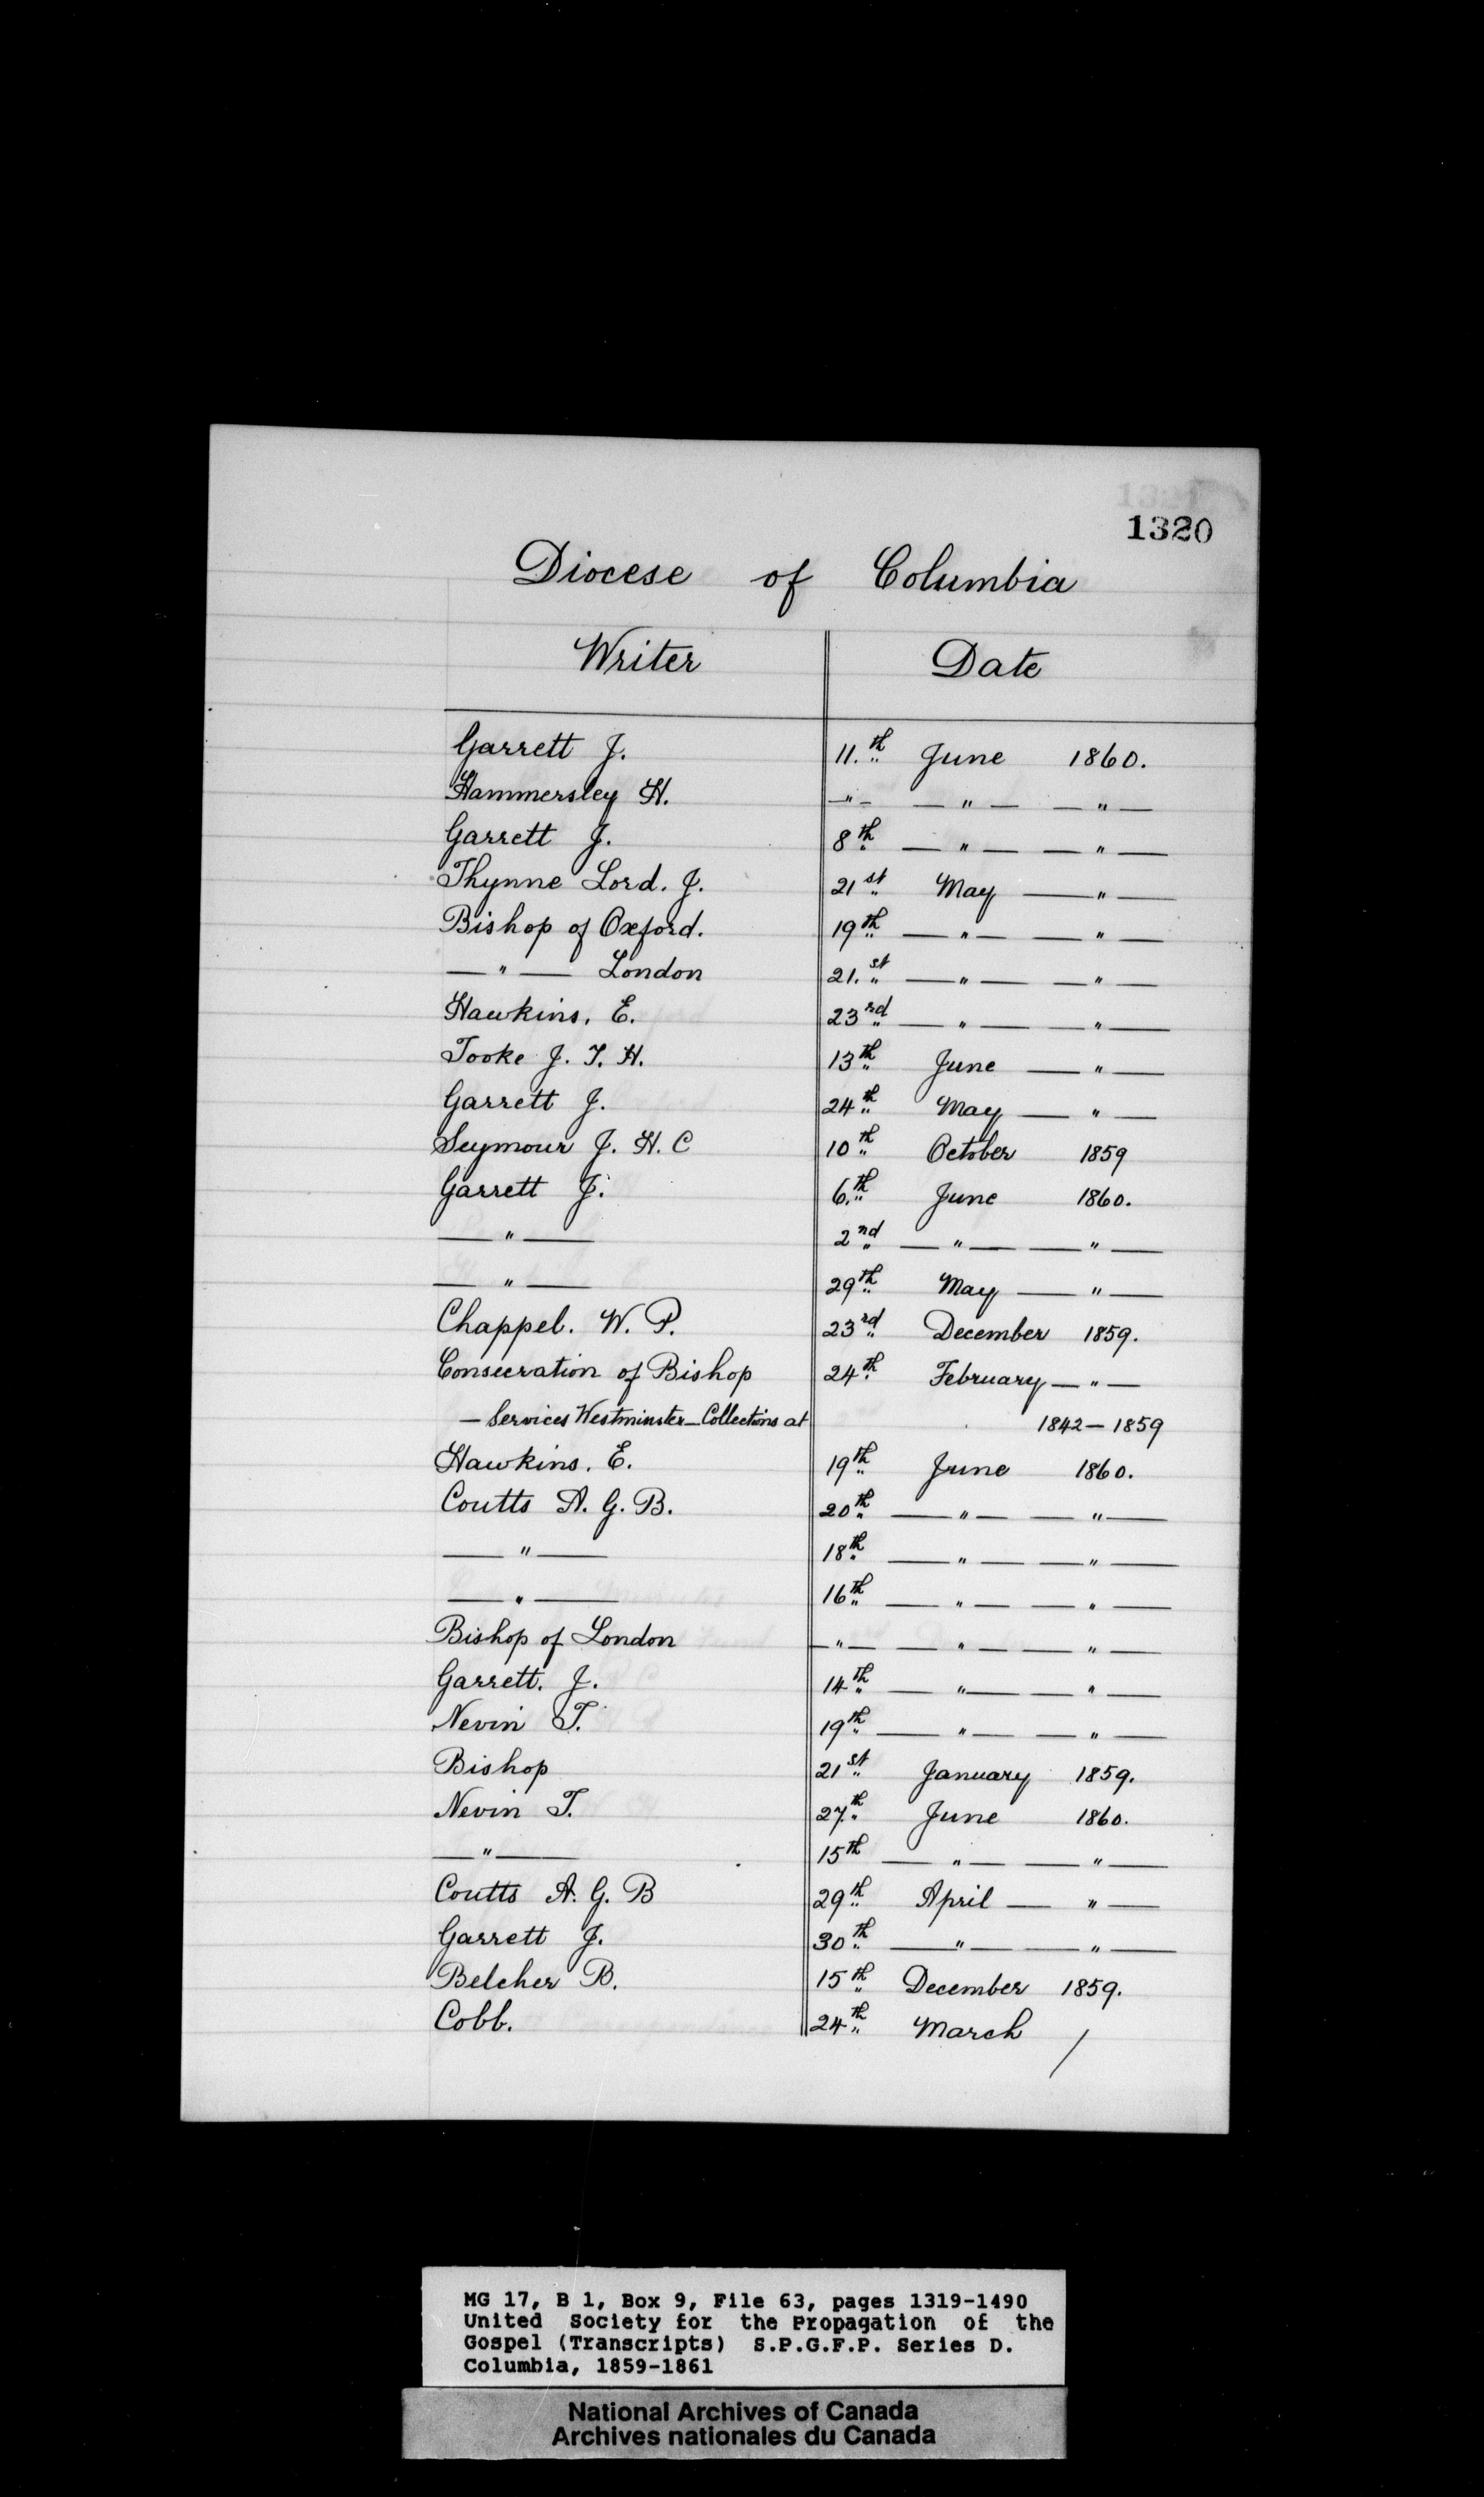 1320
Diocese of Columbia
Writer Date
Garrett J. 11.th June 1860.
Hammersley H. —"— —"— —"—
Garrett J. 8th —"— —"—
Thynne Lord. J. 21st May —"—
Bishop of Oxford. 19th —"— —"—
—"— London 21.st —"— —"—
Hawkins. E. 23rd —"— —"—
Tooke J. T. H. 13th June —"—
Garrett J. 24th May —"—
Seymour J. H. C 10th October 1859
Garrett J. 6.th June 1860.
—"— 2nd —"— —"—
—"— 29th May —"—
Chappel. W. P. 23rd December 1859.
Consecration of Bishop 24th February —"—
— Services Westminster — Collections at 1842 — 1859
Hawkins. E. 19th June 1860.
Coutts A. G. B. 20th —"— —"—
—"— 18th —"— —"—
—"— 16th —"— —"—
Bishop of London —"— —"— —"—
Garrett. J. 14th —"— —"—
Nevin T. 19th —"— —"—
Bishop 21st January 1859.
Nevin T. 27.th June 1860.
—"— 15th —"— —"—
Coutts A. G. B 29th April —"—
Garrett J. 30th —"— —"—
Belcher B. 15th December 1859.
Cobb. 24th March /
MG 17, B 1, Box 9, File 63, pages 1319-1490
United Society for the Propagation of the
Gospel (Transcripts) S.P.G.F.P. Series D.
Columbia, 1859-1861
National Archives of Canada
Archives nationales du Canada